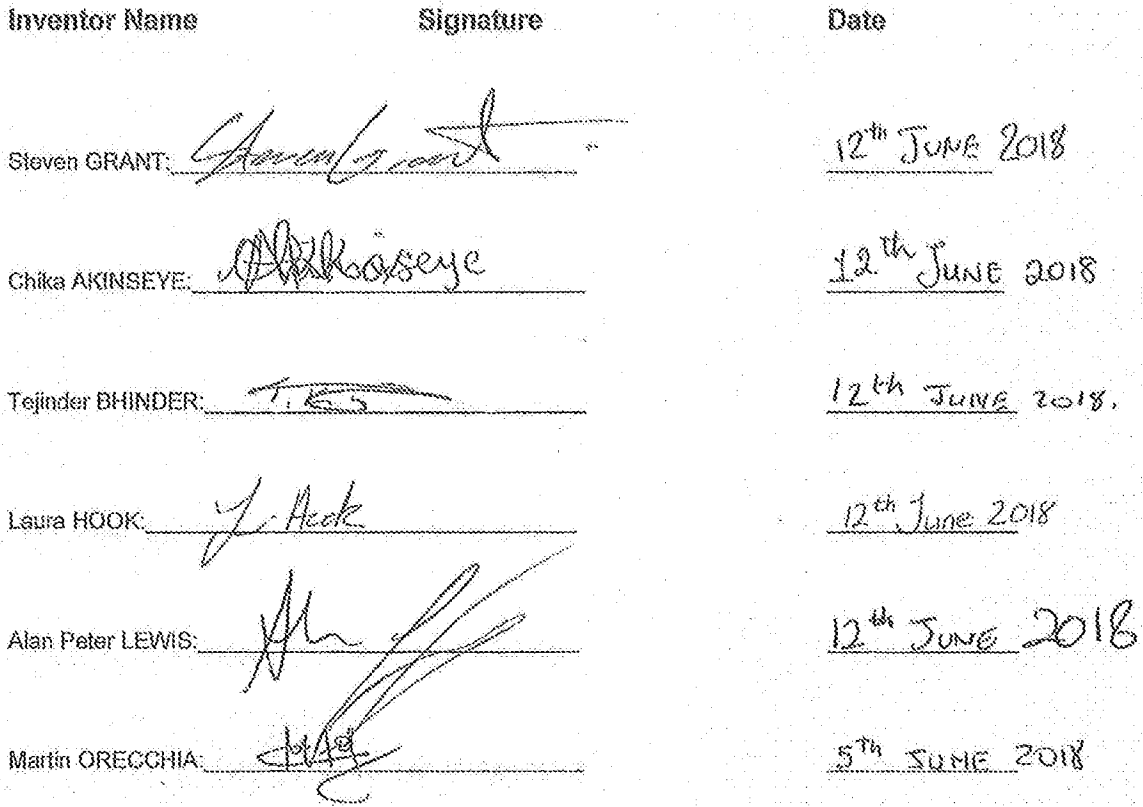 Inventor Name Signature Date
Steven GRANT: Steven Grant 12th JUNE 2018
Chika AKINSEYE: 12th JUNE 2018
Tejinder BHINDER: 12th JUNE 2018.
Laura HOOK: L. Hook 12th June 2018
Alan Peter LEWIS: 12th JUNE 2018
Martin ORECCHIA: 5th JUNE 2018